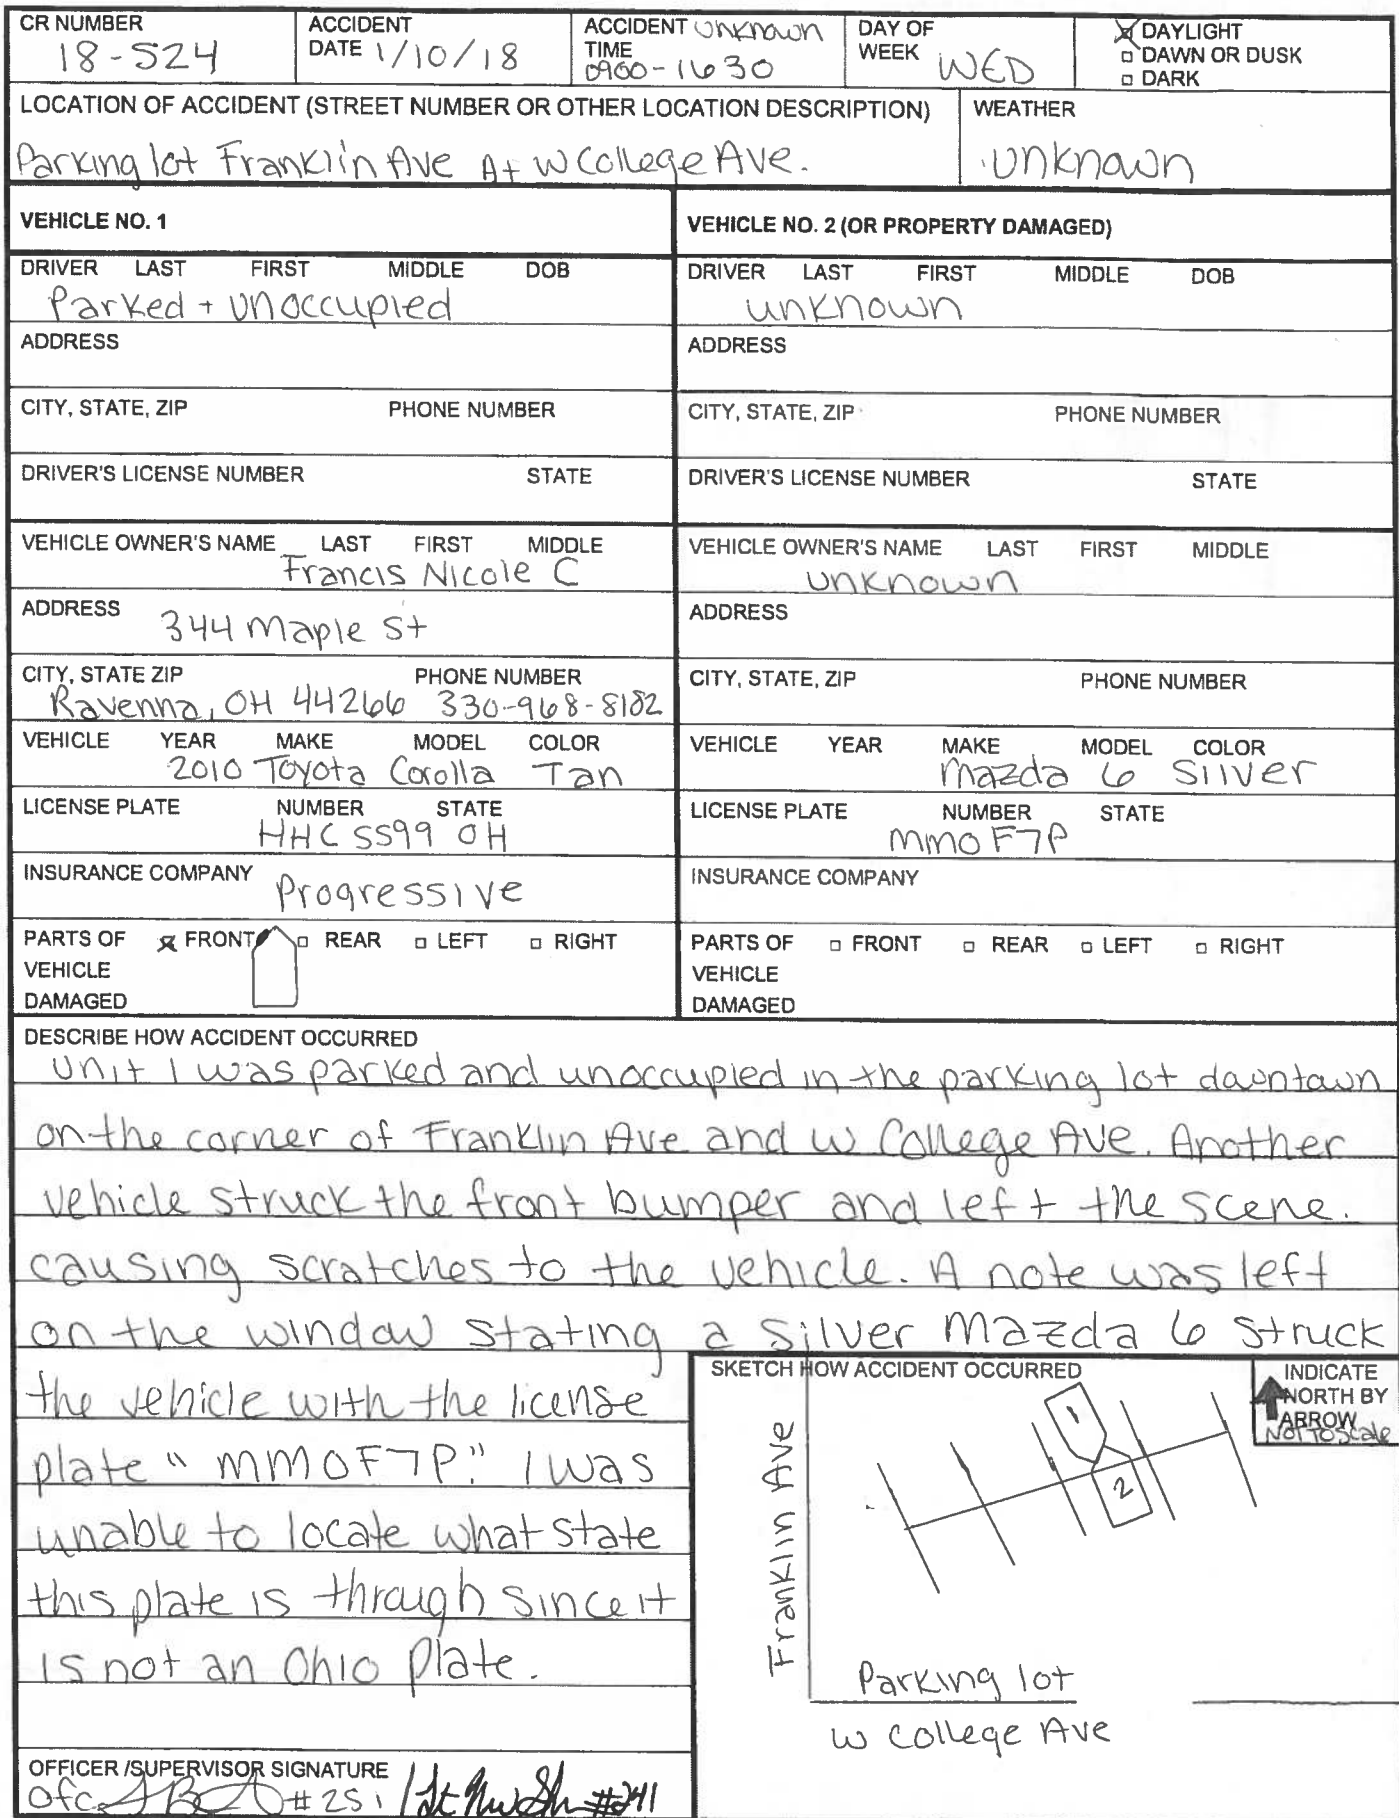 CR NUMBER 18-524 ACCIDENT DATE 1/10/18 ACCIDENT TIME Unknown 0900-1630 DAY OF WEEK WED DAYLIGHT
DAWN OR DUSK
DARK
LOCATION OF ACCIDENT (STREET NUMBER OR OTHER LOCATION DESCRIPTION) WEATHER
Parking lot Franklin Ave At W College Ave. Unknown
VEHICLE NO. 1
DRIVER LAST FIRST MIDDLE DOB
Parked + unoccupied
ADDRESS
CITY, STATE, ZIP PHONE NUMBER
DRIVER'S LICENSE NUMBER STATE
VEHICLE OWNER'S NAME LAST FIRST MIDDLE
Francis Nicole C
ADDRESS 344 Maple St
CITY, STATE ZIP PHONE NUMBER
Ravenna, OH 44266 330-968-8182
VEHICLE YEAR MAKE MODEL COLOR
2010 Toyota Corolla Tan
LICENSE PLATE NUMBER STATE
HHC 5599 OH
INSURANCE COMPANY Progressive
PARTS OF FRONT REAR LEFT RIGHT
VEHICLE
DAMAGED
VEHICLE NO. 2 (OR PROPERTY DAMAGED)
DRIVER LAST FIRST MIDDLE DOB
unknown
ADDRESS
CITY, STATE, ZIP PHONE NUMBER
DRIVER'S LICENSE NUMBER STATE
VEHICLE OWNER'S NAME LAST FIRST MIDDLE
unknown
ADDRESS
CITY, STATE, ZIP PHONE NUMBER
VEHICLE YEAR MAKE MODEL COLOR
Mazda 6 Silver
LICENSE PLATE NUMBER STATE
MMOF7P
INSURANCE COMPANY
PARTS OF FRONT REAR LEFT RIGHT
VEHICLE
DAMAGED
DESCRIBE HOW ACCIDENT OCCURRED
Unit 1 was parked and unoccupied in the parking lot downtown
on the corner of Franklin Ave and W College Ave. Another
vehicle struck the front bumper and left the scene.
causing scratches to the vehicle. A note was left
on the window stating a Silver Mazda 6 struck
the vehicle with the license
plate "MMOF7P." I was
unable to locate what state
this plate is through since it
is not an Ohio Plate.
SKETCH HOW ACCIDENT OCCURRED
INDICATE
NORTH BY
ARROW
NOT TO Scale
1
2
Franklin Ave
Parking lot
W College Ave
OFFICER /SUPERVISOR SIGNATURE
Ofc. #251 / Lt #241